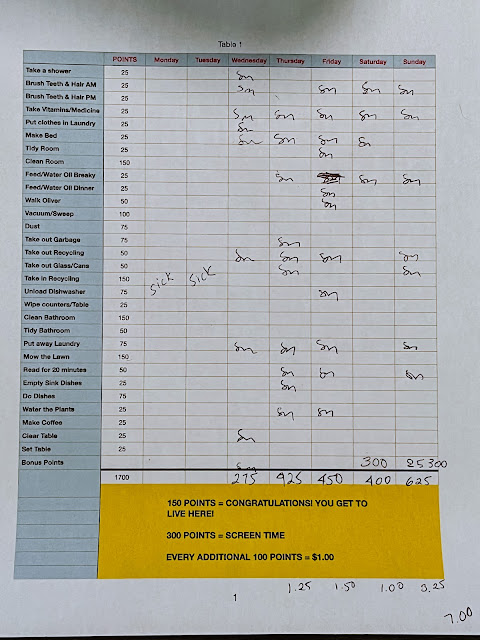 Table 1
POINTS Monday Tuesday Wednesday Thursday Friday Saturday Sunday
Take a shower 25
Brush Teeth & Hair AM 25
Brush Teeth & Hair PM 25
Take Vitamins/Medicine 25
Put clothes in Laundry 25
Make Bed 25
Tidy Room 25
Clean Room 150
Feed/Water Oli Breaky 25
Feed/Water Oli Dinner 25
Walk Oliver 50
Vacuum/Sweep 100
Dust 75
Take out Garbage 75
Take out Recycling 50
Take out Glass/Cans 50
Take in Recycling 150 sick sick
Unload Dishwasher 75
Wipe counters/Table 25
Clean Bathroom 150
Tidy Bathroom 50
Put away Laundry 75
Mow the Lawn 150
Read for 20 minutes 50
Empty Sink Dishes 25
Do Dishes 75
Water the Plants 25
Make Coffee 25
Clear Table 25
Set Table 25
Bonus Points 300 25 300
1700 275 425 450 400 625
150 POINTS = CONGRATULATIONS! YOU GET TO
LIVE HERE!
300 POINTS = SCREEN TIME
EVERY ADDITIONAL 100 POINTS = $1.00
1.25 1.50 1.00 3.25
1
7.00